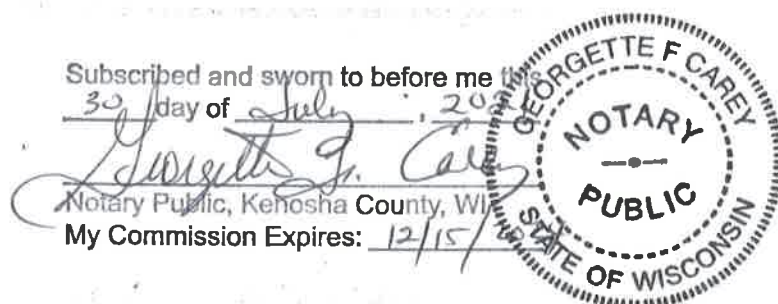 Subscribed and sworn to before me this
30 day of July, 20
Georgette F. Carey
Notary Public, Kenosha County, WI
My Commission Expires: 12/15/
GEORGETTE F CAREY
NOTARY
PUBLIC
STATE OF WISCONSIN